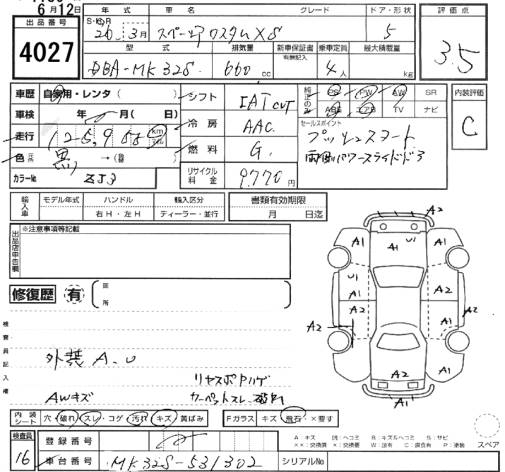 6月12日
出品番号
4027
年式 車名 グレード ドア・形状
S・H・R
26年 3月 スペーシアカスタムXS 5
型式 排気量 新車保証書 有無記入 乗車定員 最大積載量
DBA-MK32S 660 cc 4人 kg
評価点
3.5
車歴 自家用・レンタ( )
車検 年 月( 日)
走行 125,955 km
色 黒 →( )
カラーNo ZJ3
シフト IAT CVT
冷房 AAC
燃料 G
リサイクル料金 9770円
純正のみ PS PW AW SR
ABS エアB TV ナビ
セールスポイント
プッシュスタート
両側パワースライドドア
内装評価
C
輸入車 モデル年式 ハンドル 輸入区分 書類有効期限
年 右H・左H ディーラー・並行 月 日迄
出品店申告欄
※注意事項等記載
修復歴 有
箇所
検査員記入欄
外装 A.U
AWキズ
リヤスポハゲ
カーペットスレ
内装シート 穴・破れ・スレ・コゲ・汚れ・キズ・黄ばみ Fガラス キズ・飛石・×要す
検査員
16
登録番号
車台番号 MK32S-531302 シリアルNo
A2
A1 A1 U1 A1
U1 A1
A1 A2 A2
A2
A1 A1
A2
A1
A:キズ U:ヘコミ B:キズ&ヘコミ S:サビ
スペア